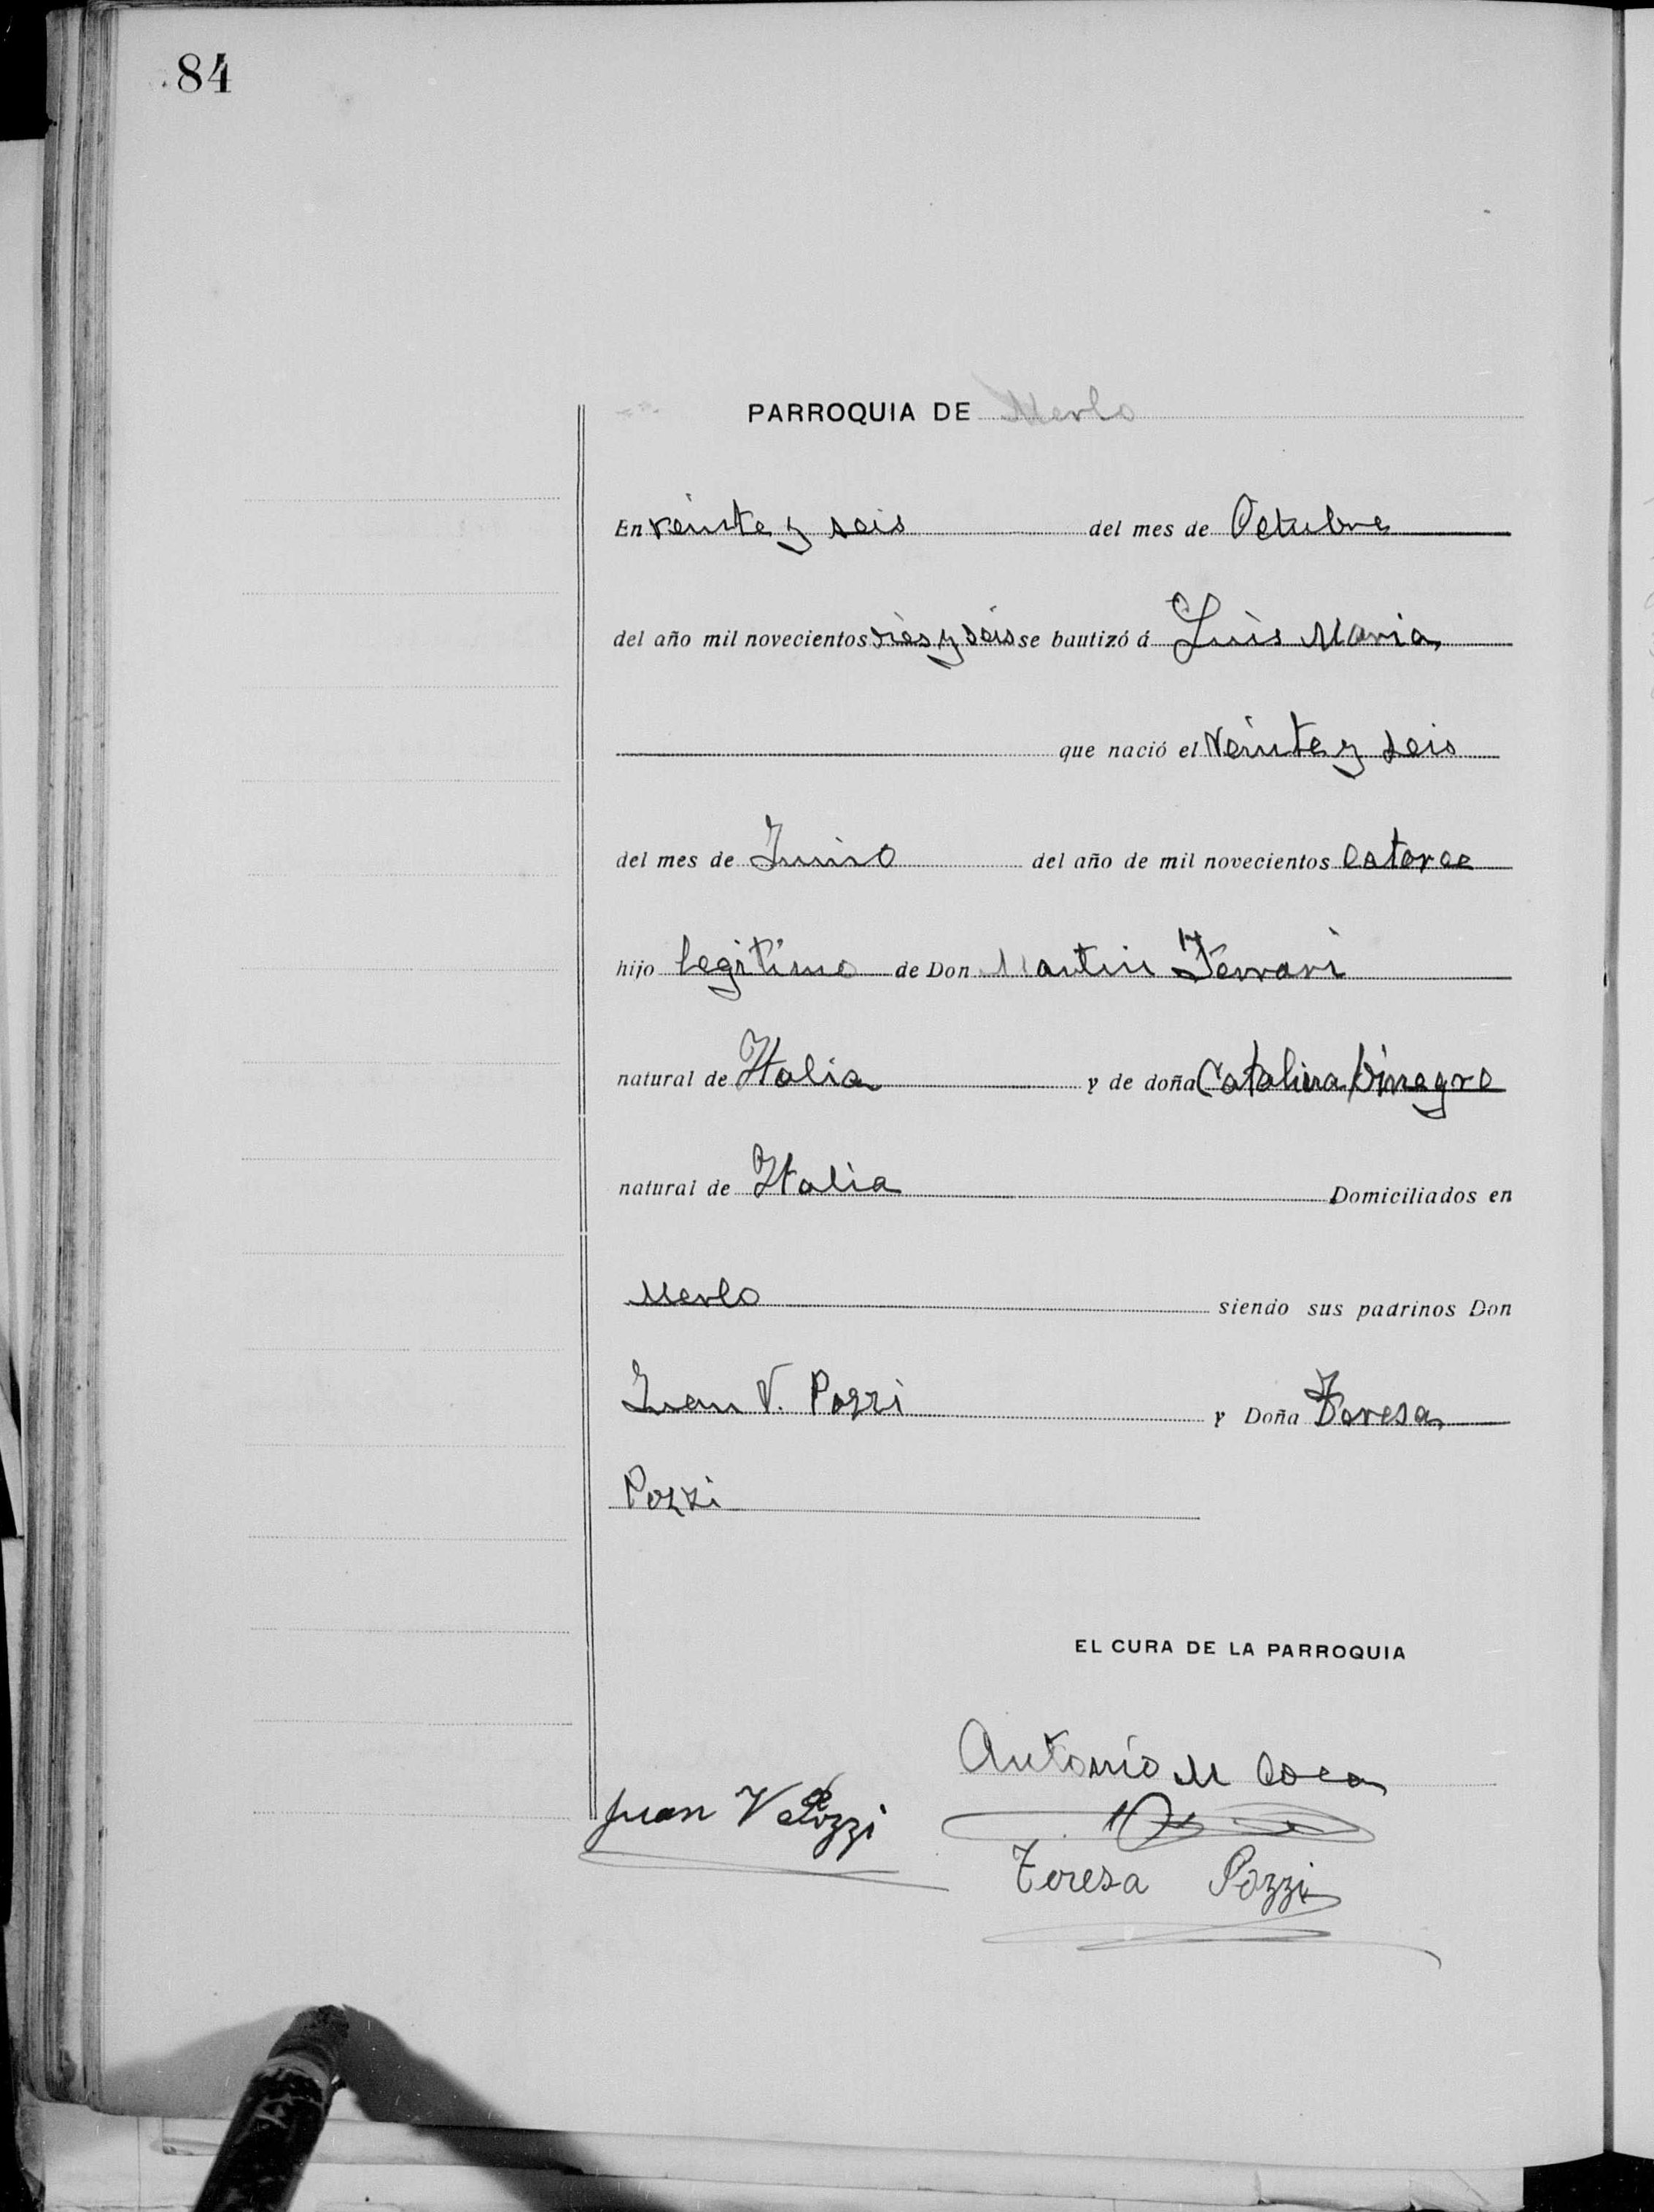 84
PARROQUIA DE Merlo
En veinte y seis del mes de Octubre
del año mil novecientos dies y seis se bautizó á Luis Maria
que nació el Veinte y seis
del mes de Junio del año de mil novecientos catorce
hijo legitimo de Don Martin Ferrari
natural de Italia y de doña Catalina Vinagre
natural de Italia Domiciliados en
Merlo siendo sus padrinos Don
Juan V. Pozzi y Doña Teresa
Pozzi
EL CURA DE LA PARROQUIA
Antonio M Coca
Juan V Pozzi
Teresa Pozzi